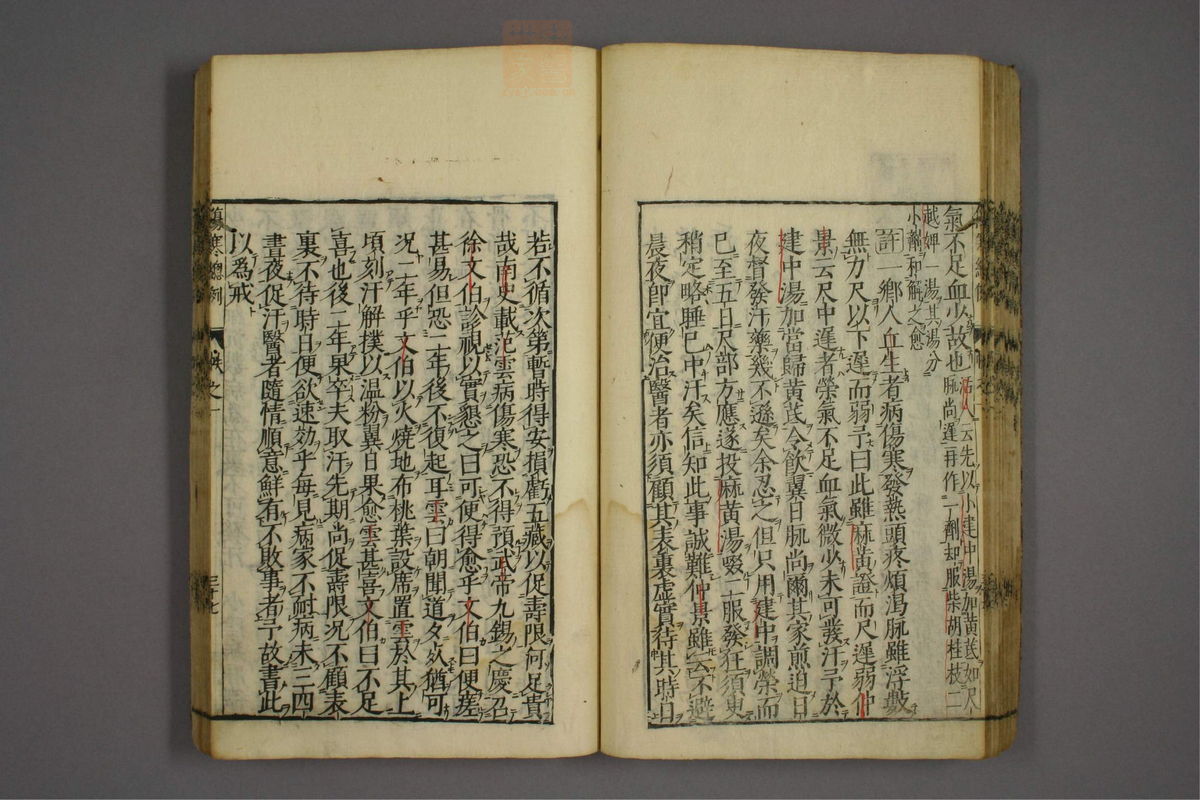 氣不足血少故也活人云先以小建中湯加黃芪如尺
脉尚遲再作一劑却服柴胡桂枝二
越婢一湯其湯分
小劑和解之愈
許一鄉人丘生者病傷寒發熱頭疼煩渴脉雖浮數
無力尺以下遲而弱予曰此雖麻黃證而尺遲弱仲
景云尺中遲者榮氣不足血氣微少未可發汗予於
建中湯加當歸黃芪令飲翼日脉尚爾其家煎迫日
夜督發汗藥幾不遜矣余忍之但只用建中調榮而
已至五日尺部方應遂投麻黃湯啜二服發狂須臾
稍定略睡已中汗矣信知此事誠難仲景雖云不避
晨夜即宜便治醫者亦須顧其表裏虛實待其時日
若不循次第暫時得安損虧五藏以促壽限何足貴
哉南史載范雲病傷寒恐不得預武帝九錫之慶召
徐文伯診視以實懇之曰可便得愈乎文伯曰便瘥
甚易但恐二年後不復起耳雲曰朝聞道夕死猶可
况二年乎文伯以火燒地布桃葉設席置雲於其上
頃刻汗解撲以温粉翼日果愈雲甚喜文伯曰不足
喜也後二年果卒夫取汗先期尚促壽限况不顧表
裏不待時日便欲速効乎每見病家不耐病未三四
晝夜促汗醫者隨情順意鮮有不敗事者予故書此
以爲戒
傷寒總例
卷之一
三十七